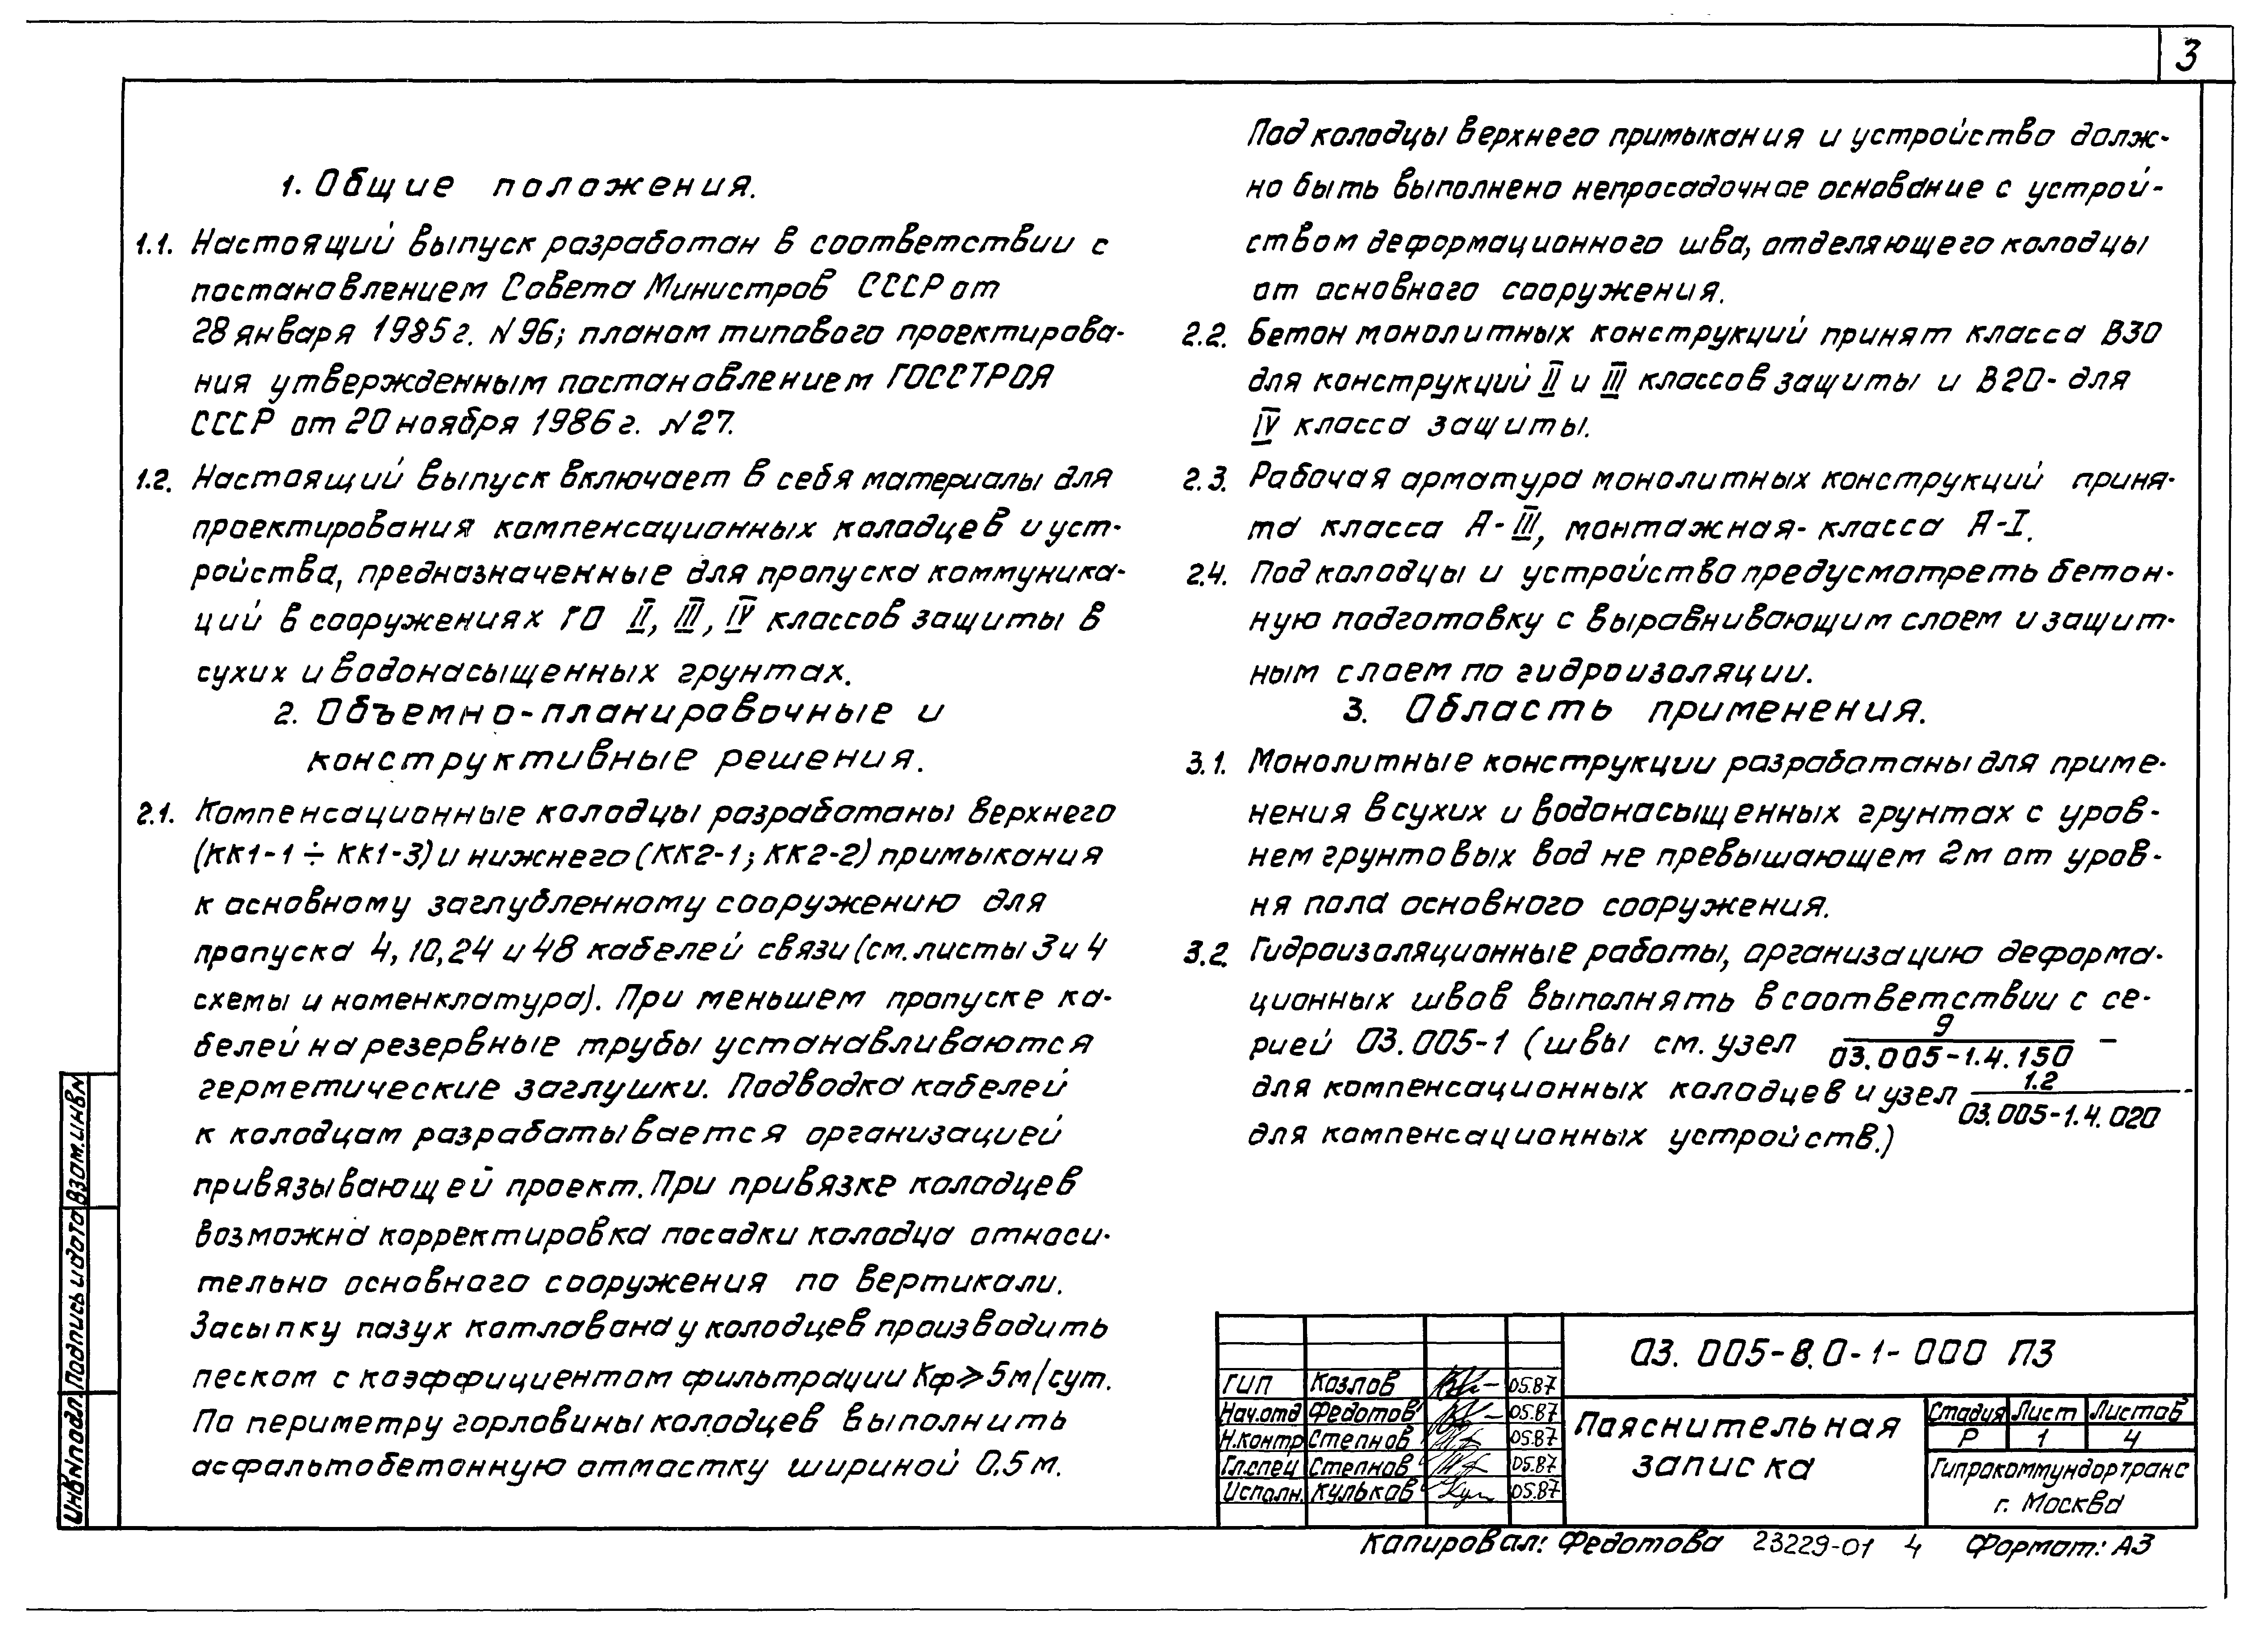 3
1. Общие положения.
1.1. Настоящий выпуск разработан в соответствии с
постановлением Совета Министров СССР от
28 января 1985г. N96; планом типового проектирова-
ния утвержденным постановлением ГОССТРОЯ
СССР от 20 ноября 1986г. N27.
1.2. Настоящий выпуск включает в себя материалы для
проектирования компенсационных колодцев и уст-
ройства, предназначенные для пропуска коммуника-
ций в сооружениях ГО II, III, IV классов защиты в
сухих и водонасыщенных грунтах.
2. Объемно-планировочные и
конструктивные решения.
2.1. Компенсационные колодцы разработаны верхнего
(КК1-1 ÷ КК1-3) и нижнего (КК2-1; КК2-2) примыкания
к основному заглубленному сооружению для
пропуска 4, 10, 24 и 48 кабелей связи (см. листы 3 и 4
схемы и номенклатура). При меньшем пропуске ка-
белей на резервные трубы устанавливаются
герметические заглушки. Подводка кабелей
к колодцам разрабатывается организацией
привязывающей проект. При привязке колодцев
возможна корректировка посадки колодца относи-
тельно основного сооружения по вертикали.
Засыпку пазух котлована у колодцев производить
песком с коэффициентом фильтрации Кф⩾5м/сут.
По периметру горловины колодцев выполнить
асфальтобетонную отмостку шириной 0,5м.
Под колодцы верхнего примыкания и устройство долж-
но быть выполнено непросадочное основание с устрой-
ством деформационного шва, отделяющего колодцы
от основного сооружения.
2.2. Бетон монолитных конструкций принят класса В30
для конструкций II и III классов защиты и В20- для
IV класса защиты.
2.3. Рабочая арматура монолитных конструкций приня-
та класса А-III, монтажная- класса А-I.
2.4. Под колодцы и устройства предусмотреть бетон-
ную подготовку с выравнивающим слоем и защит-
ным слоем по гидроизоляции.
3. Область применения.
3.1. Монолитные конструкции разработаны для приме-
нения в сухих и водонасыщенных грунтах с уров-
нем грунтовых вод не превышающем 2м от уров-
ня пола основного сооружения.
3.2. Гидроизоляционные работы, организацию деформа-
ционных швов выполнять в соответствии с се-
рией 03.005-1 (швы см. узел 9/03.005-1.4.150 -
для компенсационных колодцев и узел 1.2/03.005-1.4.020 -
для компенсационных устройств.)
Взам.инвN
Подпись и дата
ИнвNподл.
03.005-8.0-1-000 ПЗ
ГИП Козлов 05.87
Нач.отд Федотов 05.87
Н.контр Степнов 05.87
Гл.спец Степнов 05.87
Исполн. Кульков 05.87
Пояснительная
записка
Стадия Лист Листов
Р 1 4
Гипрокоммундортранс
г. Москва
Копировал: Федотова 23229-01 4 Формат: А3